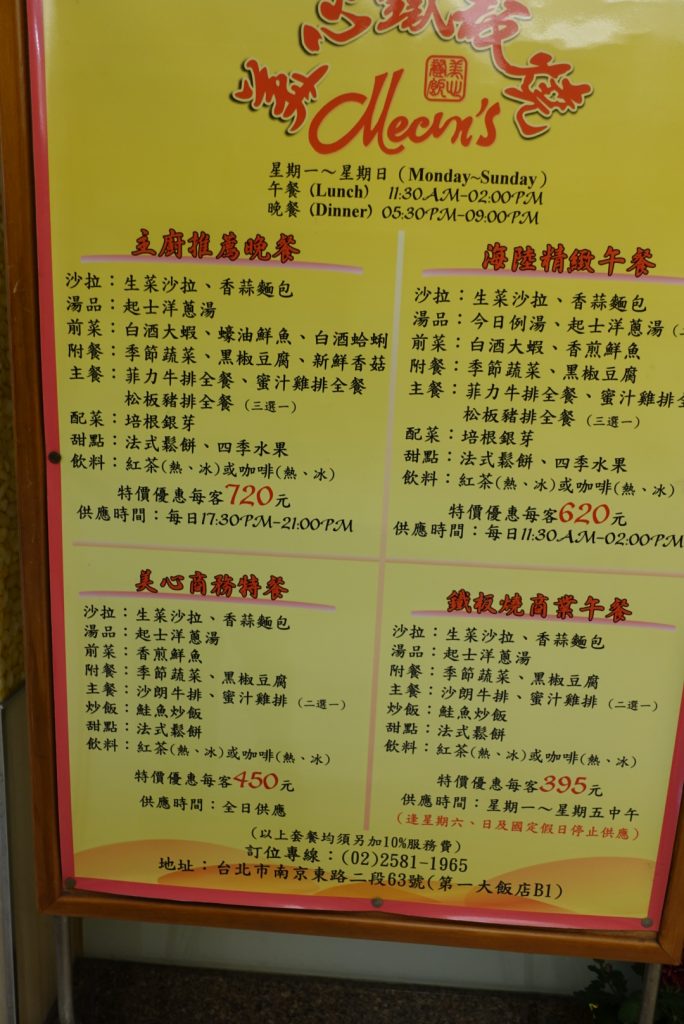 美心鐵板燒
美心
餐飲
Mecin's
星期一～星期日（Monday~Sunday）
午餐 (Lunch) 11:30AM-02:00PM
晚餐 (Dinner) 05:30PM-09:00PM
主廚推薦晚餐
沙拉：生菜沙拉、香蒜麵包
湯品：起士洋蔥湯
前菜：白酒大蝦、蠔油鮮魚、白酒蛤蜊
附餐：季節蔬菜、黑椒豆腐、新鮮香菇
主餐：菲力牛排全餐、蜜汁雞排全餐
松板豬排全餐（三選一）
配菜：培根銀芽
甜點：法式鬆餅、四季水果
飲料：紅茶(熱、冰)或咖啡(熱、冰)
特價優惠每客720元
供應時間：每日17:30PM-21:00PM
海陸精緻午餐
沙拉：生菜沙拉、香蒜麵包
湯品：今日例湯、起士洋蔥湯
前菜：白酒大蝦、香煎鮮魚
附餐：季節蔬菜、黑椒豆腐
主餐：菲力牛排全餐、蜜汁雞排全
松板豬排全餐（三選一）
配菜：培根銀芽
甜點：法式鬆餅、四季水果
飲料：紅茶(熱、冰)或咖啡(熱、冰)
特價優惠每客620元
供應時間：每日11:30AM-02:00PM
美心商務特餐
沙拉：生菜沙拉、香蒜麵包
湯品：起士洋蔥湯
前菜：香煎鮮魚
附餐：季節蔬菜、黑椒豆腐
主餐：沙朗牛排、蜜汁雞排（二選一）
炒飯：鮭魚炒飯
甜點：法式鬆餅
飲料：紅茶(熱、冰)或咖啡(熱、冰)
特價優惠每客450元
供應時間：全日供應
鐵板燒商業午餐
沙拉：生菜沙拉、香蒜麵包
湯品：起士洋蔥湯
附餐：季節蔬菜、黑椒豆腐
主餐：沙朗牛排、蜜汁雞排（二選一）
炒飯：鮭魚炒飯
甜點：法式鬆餅
飲料：紅茶(熱、冰)或咖啡(熱、冰)
特價優惠每客395元
供應時間：星期一～星期五中午
（逢星期六、日及國定假日停止供應）
（以上套餐均須另加10%服務費）
訂位專線：(02)2581-1965
地址：台北市南京東路二段63號(第一大飯店B1)